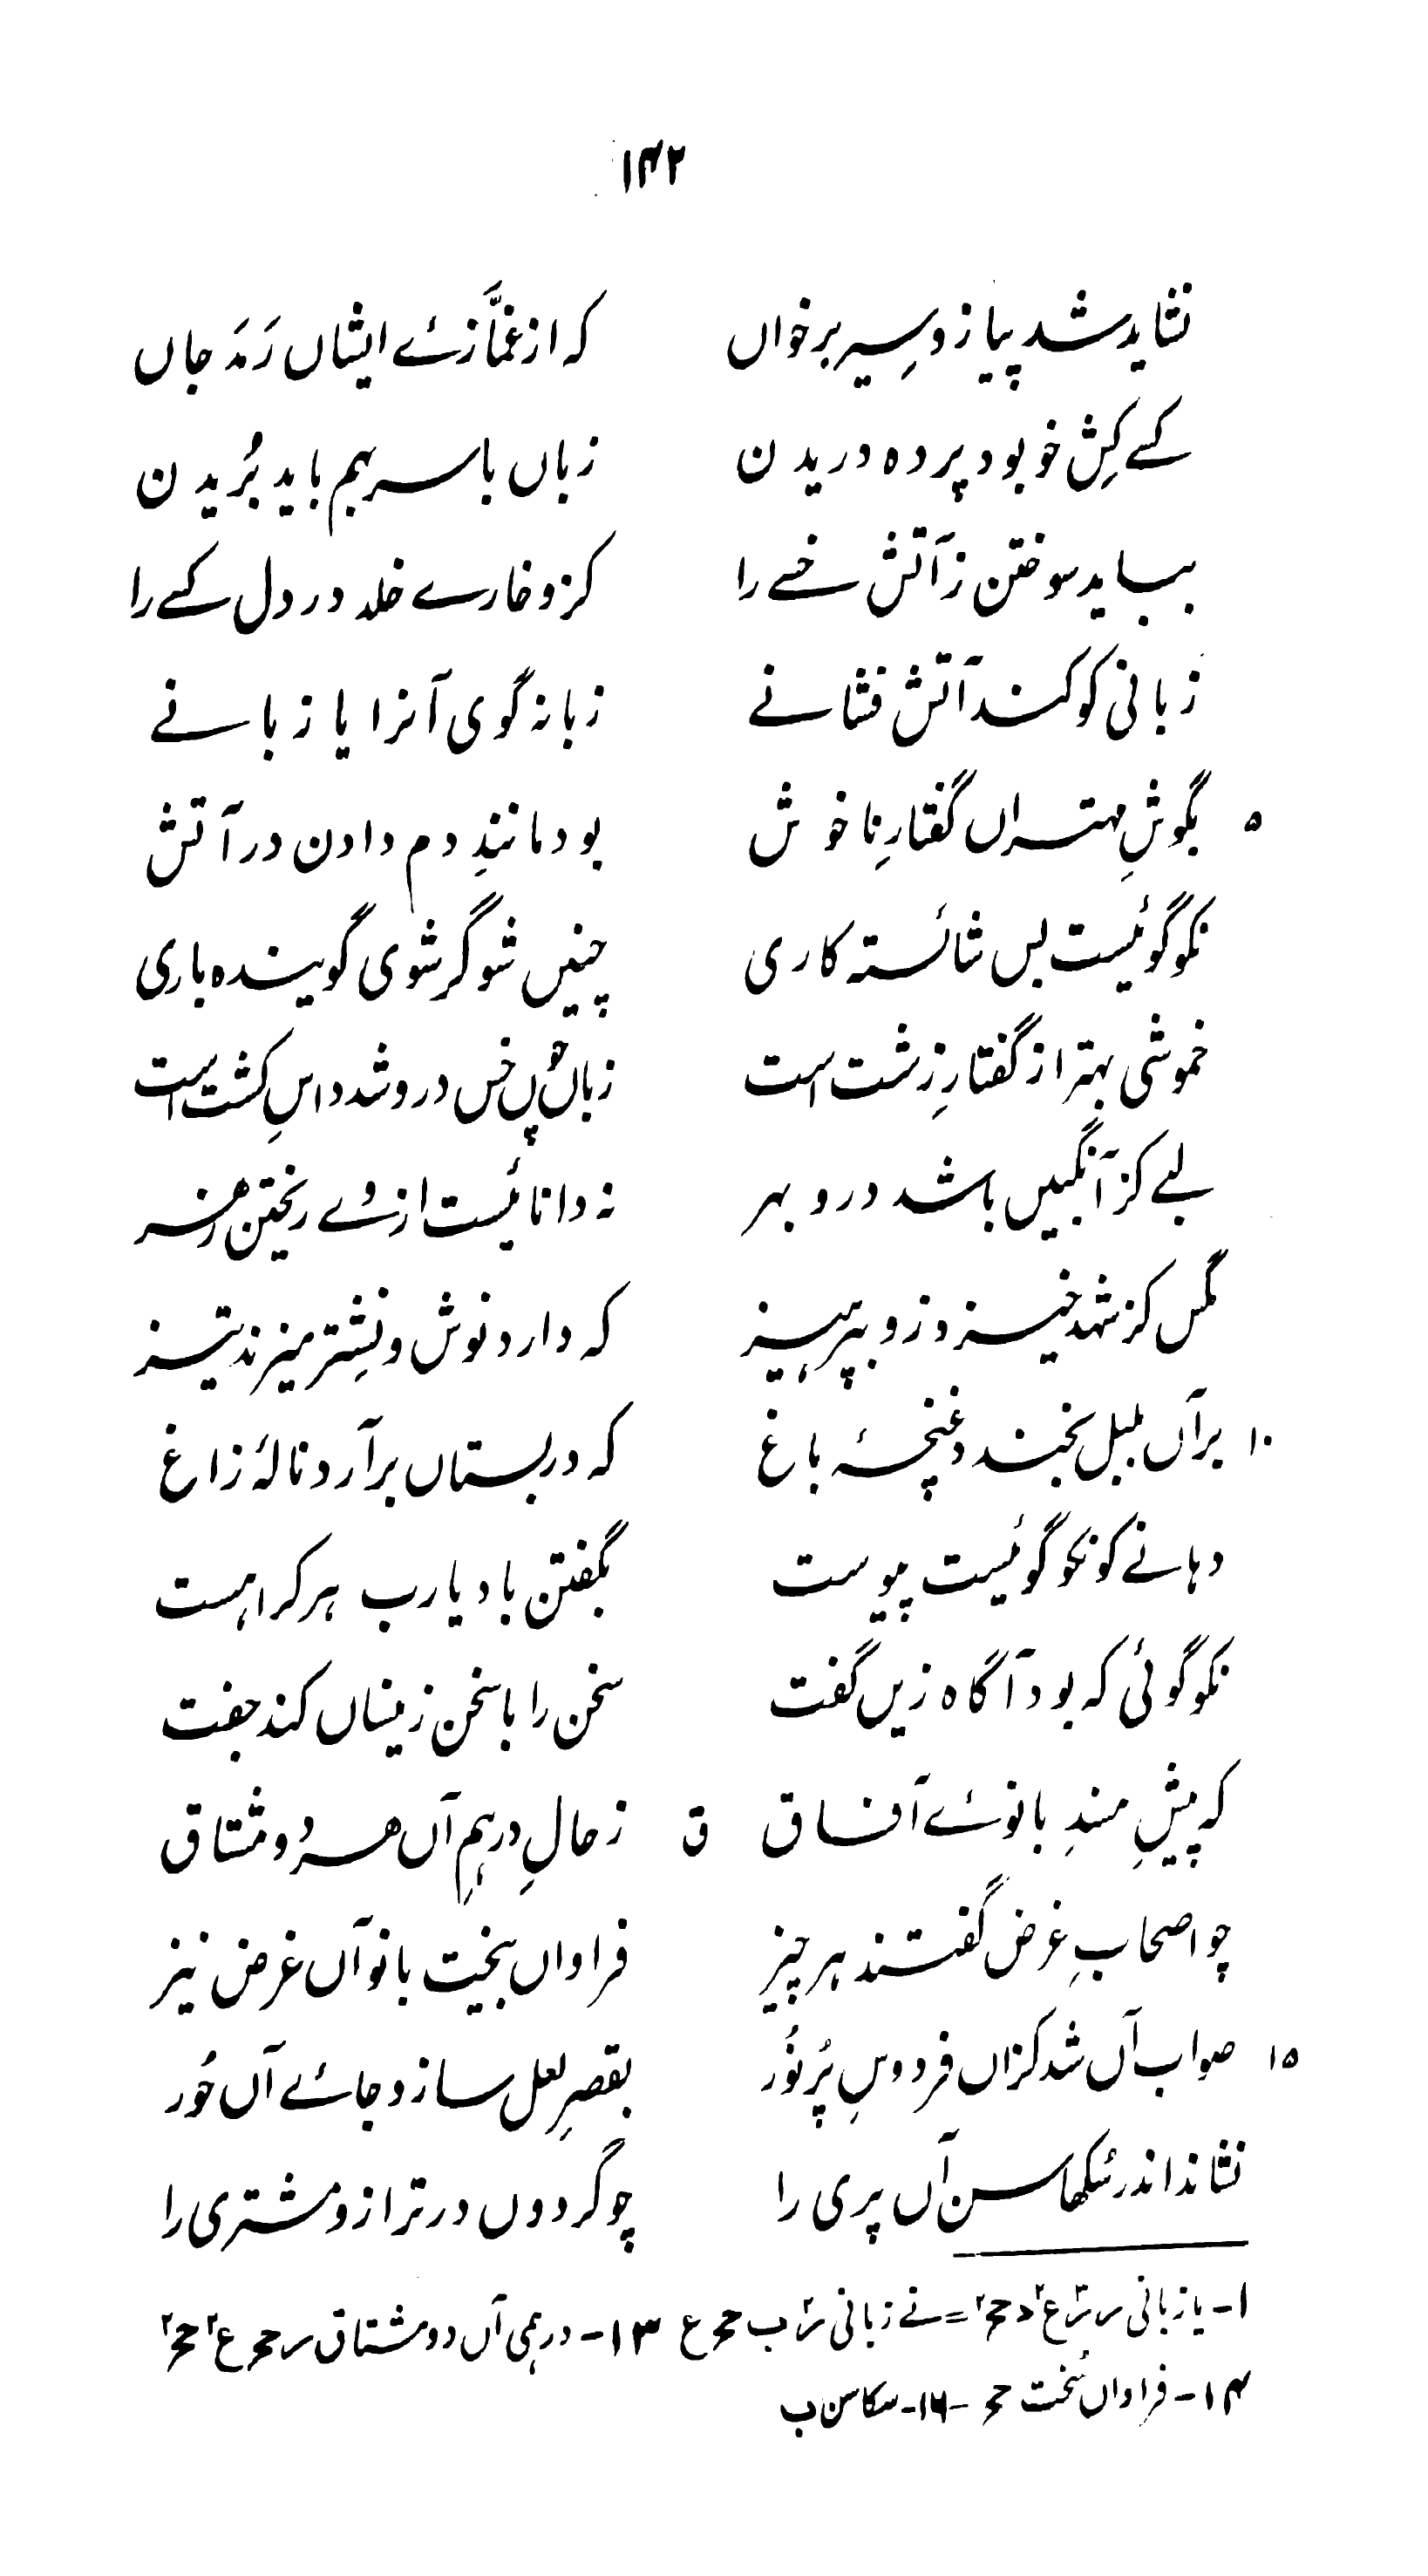 ۱۴۲
نشاید شد پیاز و سِیر بر خواں    که از غمّازئے ایشاں رَمَد جاں
کسے کِش خو بود پرده دریدن    زباں با سر بہم باید بُریدن
ببایدسوختن ز آتش خسے را    کزو خارے خلد در دل کسے را
زبانی کو کند آتش فشانے    زبانہ گوی آنرا یا زبانے
۵ بگوشِ مہتراں گفتارِ ناخوش    بود مانندِ دم دادن در آتش
نکوگوئیست بس شائستہ کاری    چنیں شو گر شوی گویندہ باری
خموشی بہتر از گفتارِ زشت است    زباں چوں خس درو شد داسِ کشت است
لبے کز آنگبیں باشد درو بہر    نہ دانائیست از وے ریختن زہر
مگس کز شہد خیزد زو بپرہیز    کہ دارد نوش و نِشتر میزند تیز
۱۰ بر آں بلبل بخندد غنچۂ باغ    کہ در بستاں برآرد نالۂ زاغ
دہانے کو نکوگوئیست پیوست    بگفتن باد یارب ہر کرا ہست
نکوگوئی کہ بود آگاہ زیں گفت    سخن را با سخن زینساں کند جفت
کہ پیشِ مسندِ بانوئے آفاق    ق    ز حالِ درہمِ آں ہر دو مشتاق
چو اصحابِ غرض گفتند ہر چیز    فراواں پخیت بانو آں غرض نیز
۱۵ صواب آں شد کزاں فردوسِ پُر نُور    بقصرِ لعل سازد جائے آں حُور
نشاند اندر سُکھاسن آں پری را    چو گردوں در ترازو مشتری را
۱- یا زبانی = نے زبانی    ۱۳- درہمی آں دو مشتاق
۱۴- فراواں سُخت    ۱۶- سکاسن ب